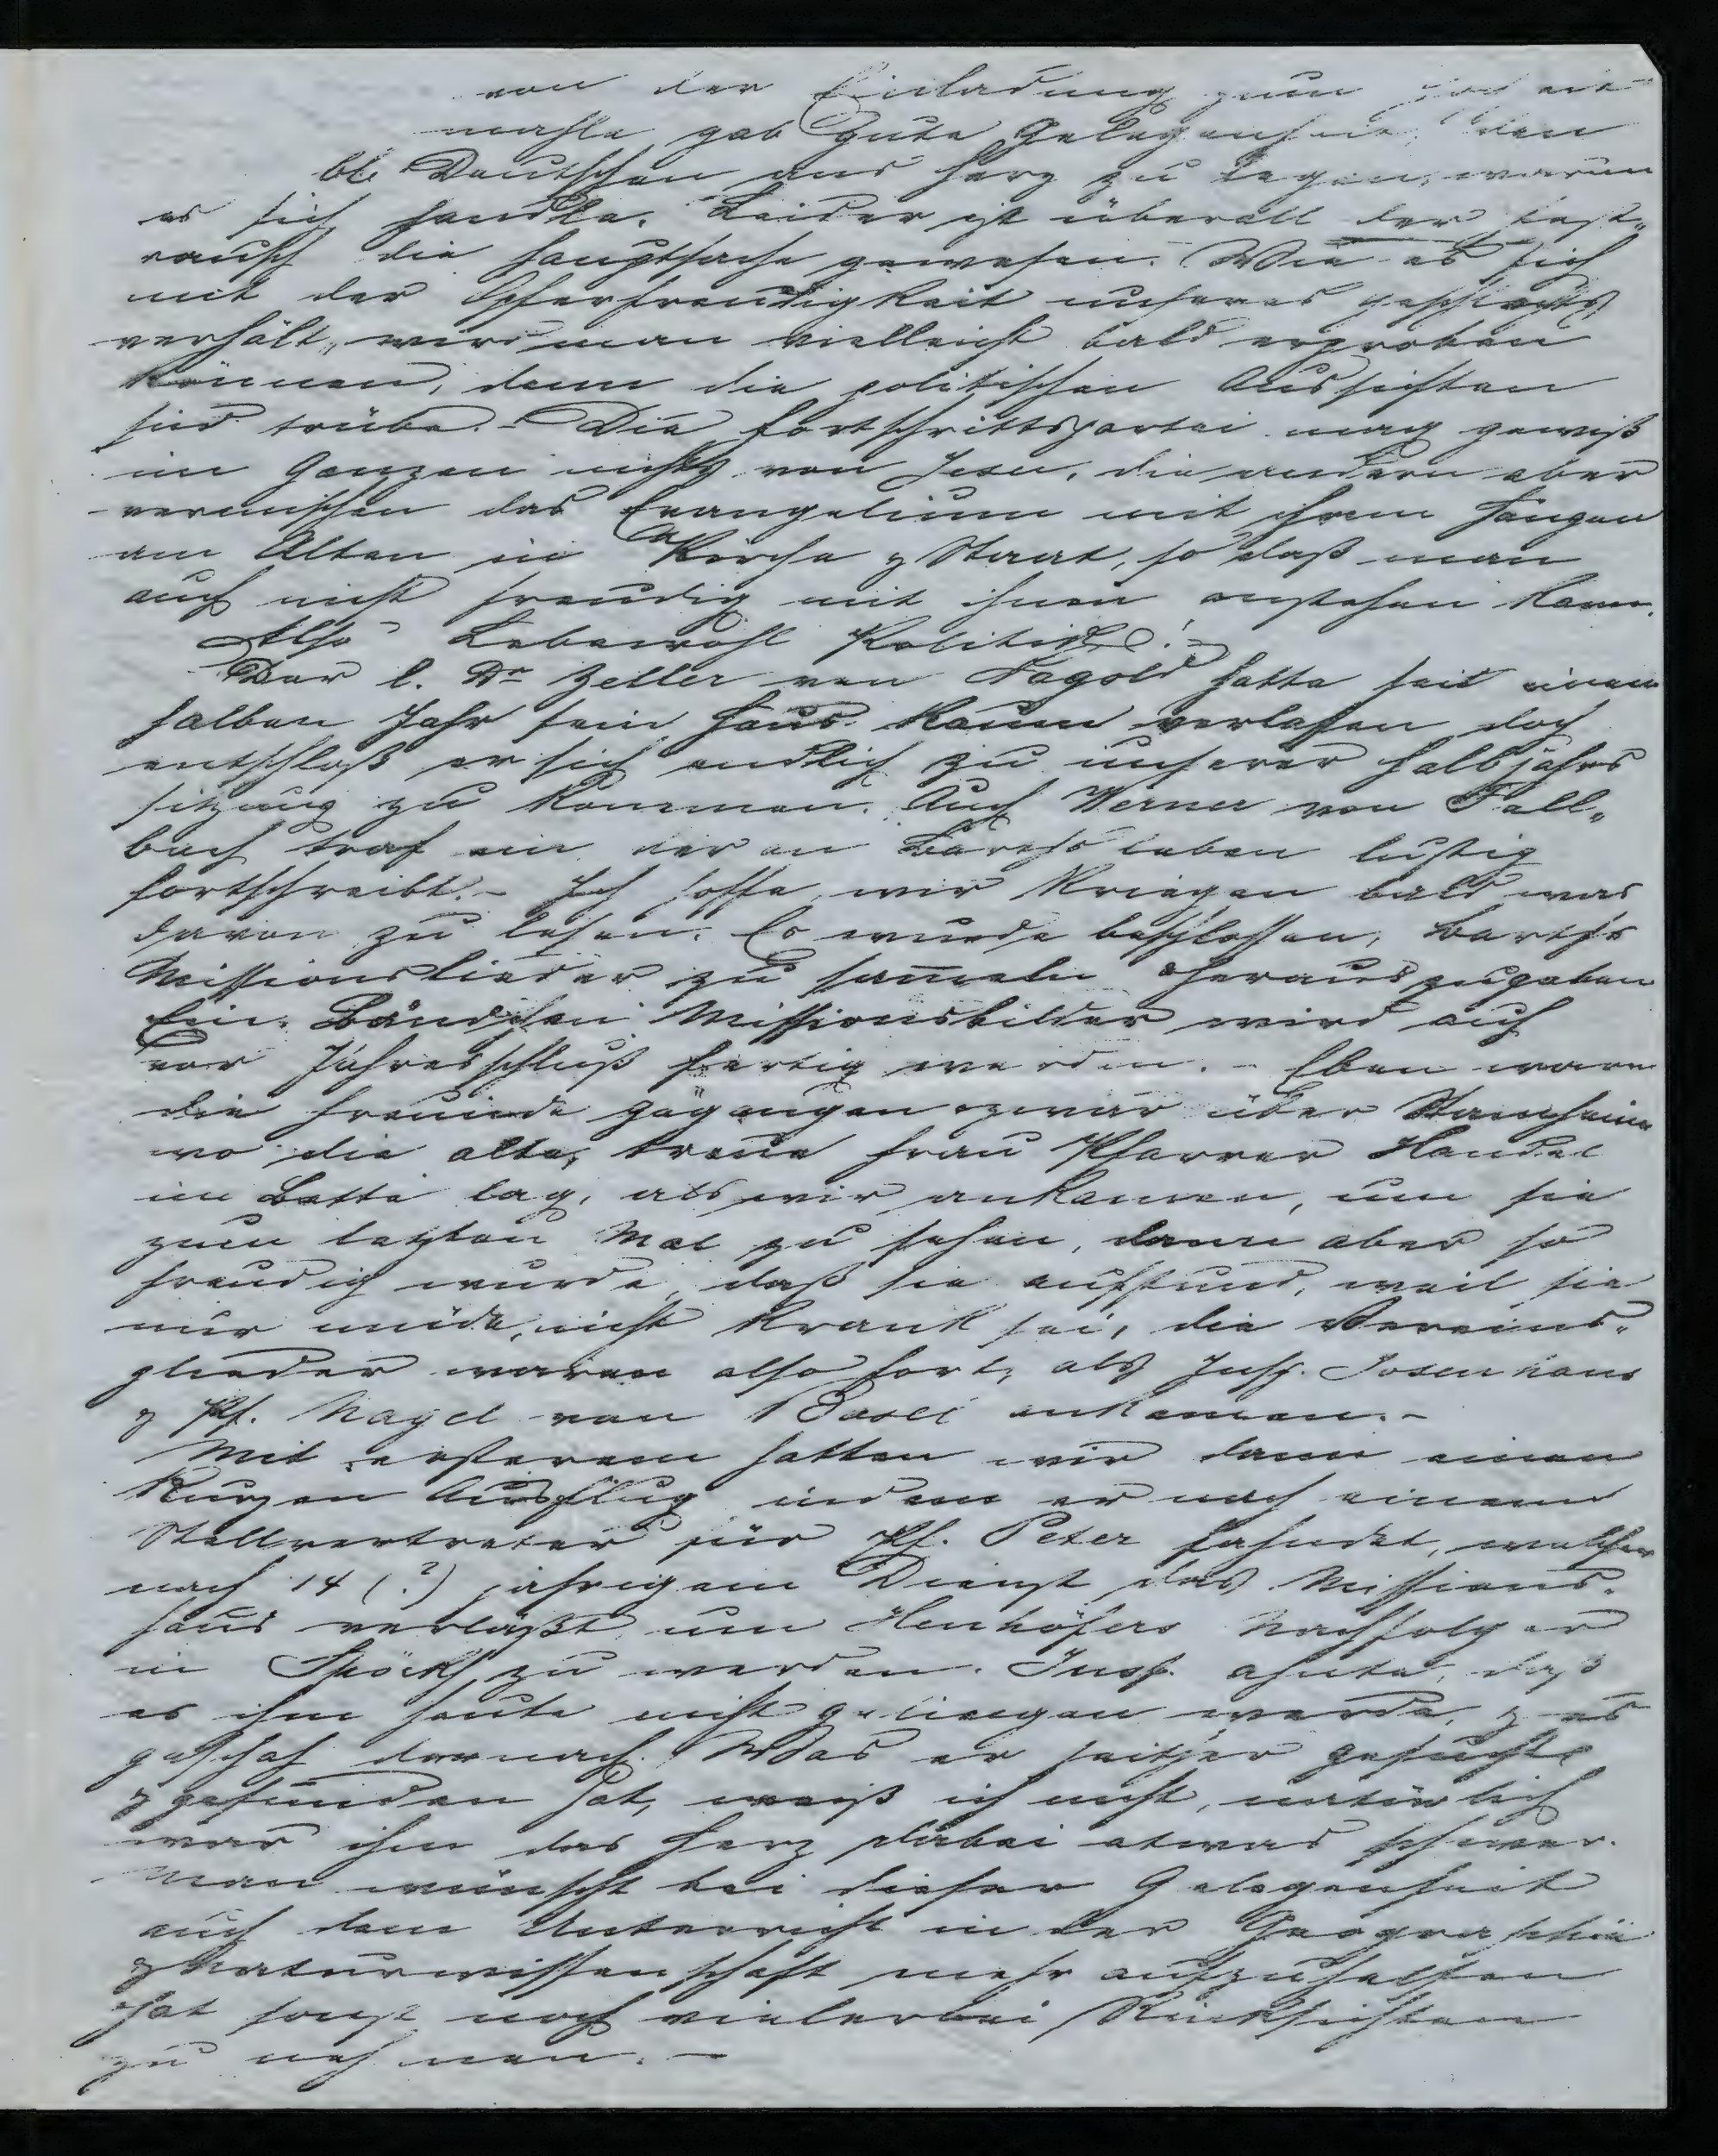 von der Einladung zum
mahle gab gute Gelegenheit, den
Deutschen ans Herz zu legen, warum
es sich handle. Leider ist überall der Fest-
rausch die Hauptsache gewesen. Wie es sich
mit der Opferfreudigkeit unseres Geschlechts
verhält, wird man vielleicht bald erproben
können, denn die politischen Aussichten
sind trübe. - Die Fortschrittspartei mag gewiß
im Ganzen nichts von Jesu, die andern aber
vermischen das Evangelium mit ihrem Hangen
am Alten in Kirche & Staat, so daß man
auch nicht freudig mit ihnen anstehen kann.
Also Lebewohl Politik! -
Der l. Dr Zeller von Nagold hatte seit einem
halben Jahr sein Haus kaum verlassen doch
entschloß er sich endlich zu unserer Halbjahrs
sitzung zu kommen. Auch Werner von Fell-
bach traf ein der an Barths Leben lustig
fortschreibt. - Ich hoffe, wir kriegen bald was
davon zu lesen. Es wurde beschlossen, Barths
Missionslieder zu sammeln & herauszugeben
Ein Bändchen Missionsbilder wird auch
vor Jahresschluß fertig werden. - Eben waren
die Freunde gegangen & zwar über Stammheim
wo die alte, treue Frau Pfarrer Handel
im Bette lag, als wir ankamen, um sie
zum letzten Mal zu sehen, dann aber so
freudig wurde, daß sie aufstund, weil sie
nur müde, nicht krank sei, die Vereins-
glieder waren also fort, als Insp. Josenhans
& Pf. Nagel von Basel ankamen. -
Mit ersterem hatten wir dann einen
kurzen Ausflug indem er nach einem
Stellvertreter für Pf. Peter fahndet, welcher
nach 14 (?) jährigem Dienst das Missions-
haus verläßt um Henhöfers Nachfolger
in Spöck zu werden. Insp. ahnte, daß
es ihm heute nicht gelingen werde, & es
geschah darnach. Was er seither gesucht
& gefunden hat, weiß ich nicht, natürlich
war ihm das Herz dabei etwas schwer.
Man wünscht bei dieser Gelegenheit
auch dem Unterricht in der Geographie
& Naturwissenschaft mehr aufzuhelfen
& hat sonst noch vielerlei Rücksichten
zu nehmen. -